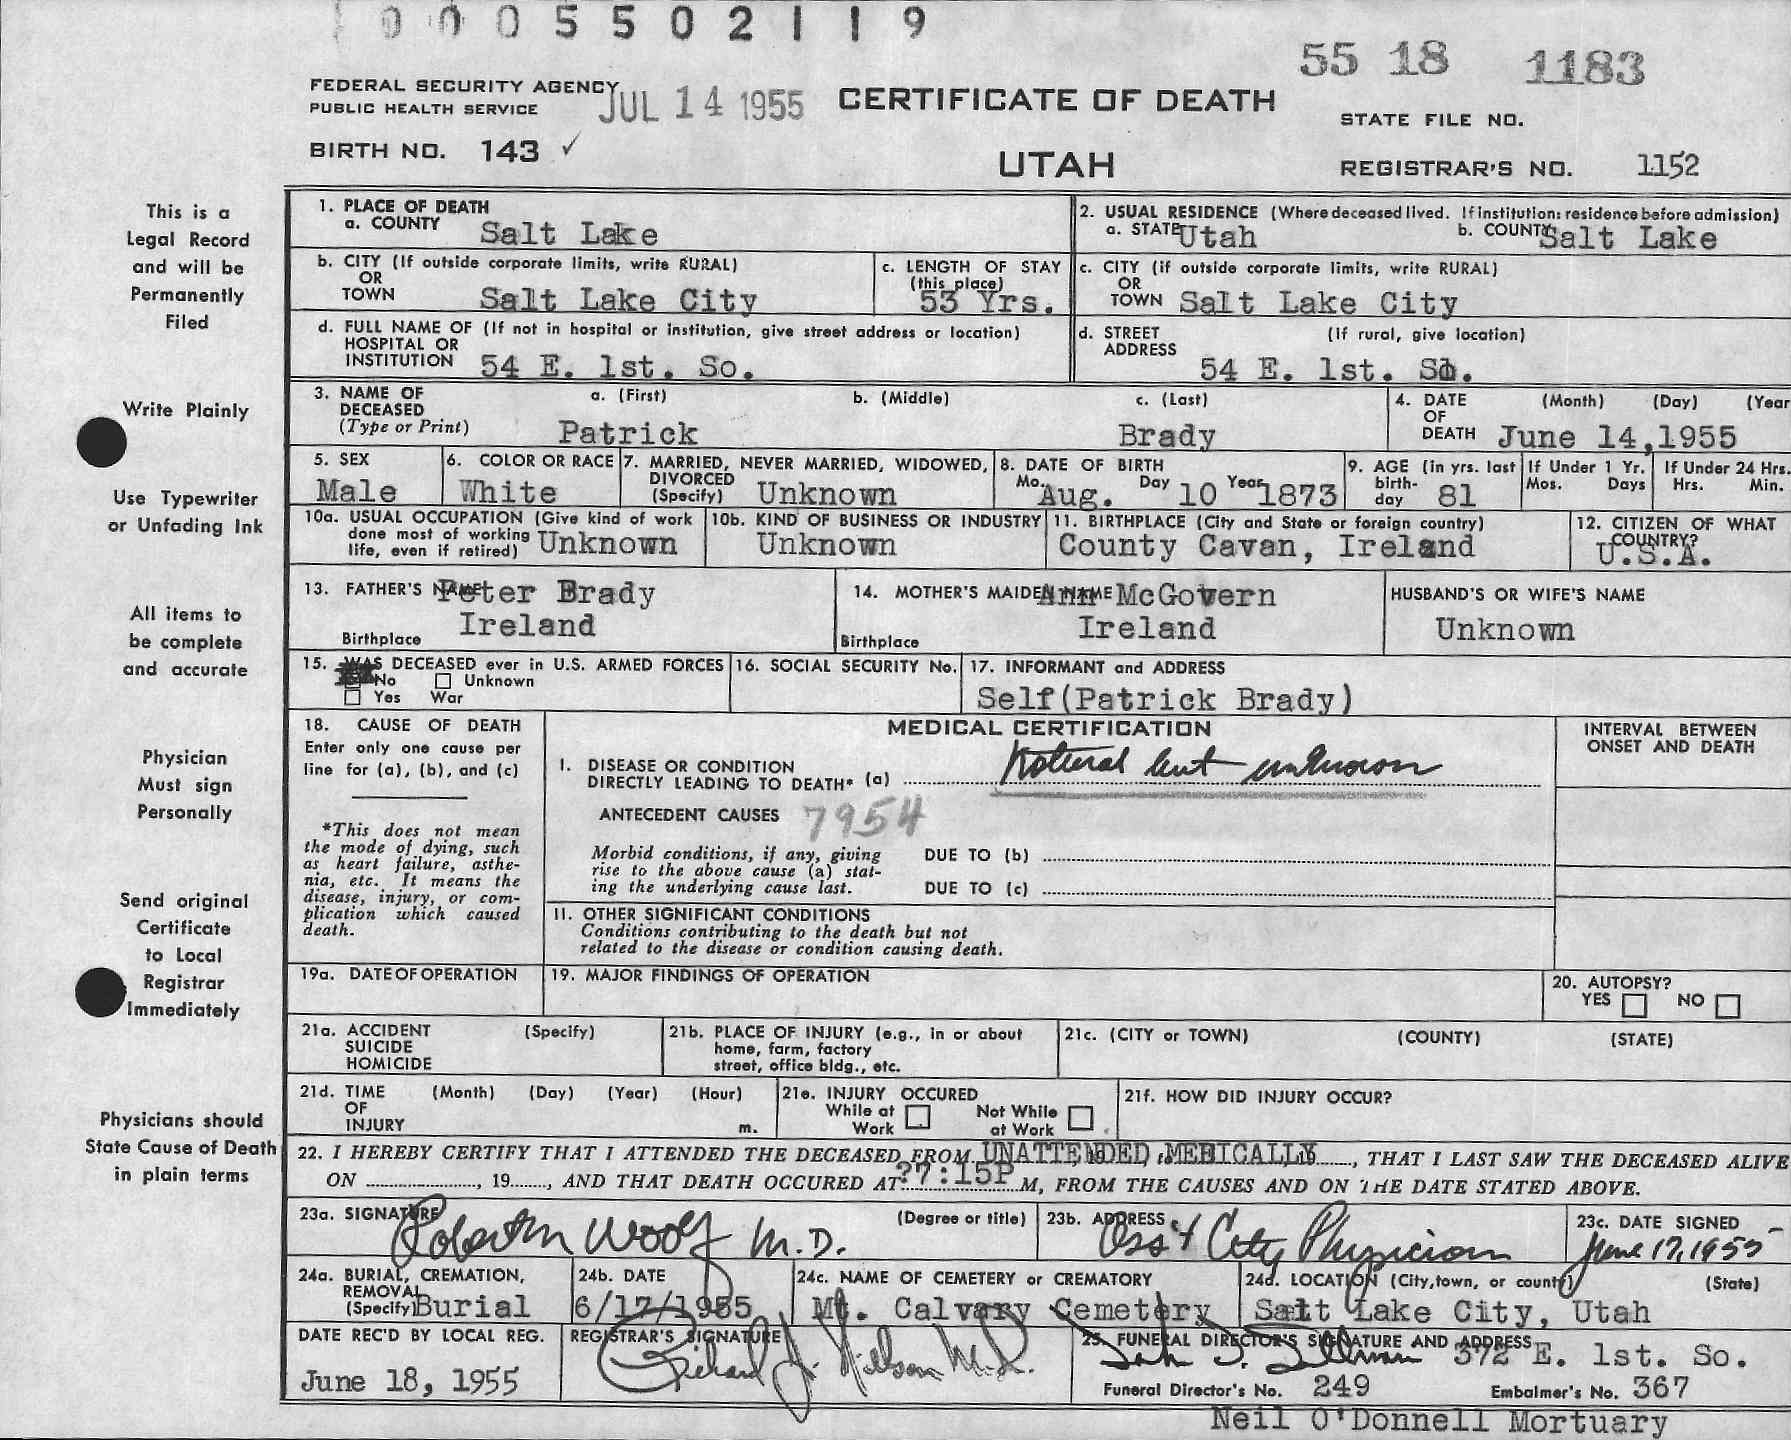 0005502119
55 18 1183
FEDERAL SECURITY AGENCY
PUBLIC HEALTH SERVICE
JUL 14 1955
CERTIFICATE OF DEATH
STATE FILE NO.
BIRTH NO. 143 ✓
UTAH
REGISTRAR'S NO. 1152
This is a
Legal Record
and will be
Permanently
Filed
Write Plainly
Use Typewriter
or Unfading Ink
All items to
be complete
and accurate
Physician
Must sign
Personally
Send original
Certificate
to Local
Registrar
Immediately
Physicians should
State Cause of Death
in plain terms
1. PLACE OF DEATH
a. COUNTY Salt Lake
2. USUAL RESIDENCE (Where deceased lived. If institution: residence before admission)
a. STATE Utah b. COUNTY Salt Lake
b. CITY (If outside corporate limits, write RURAL)
OR
TOWN Salt Lake City
c. LENGTH OF STAY
(this place)
53 Yrs.
c. CITY (if outside corporate limits, write RURAL)
OR
TOWN Salt Lake City
d. FULL NAME OF (If not in hospital or institution, give street address or location)
HOSPITAL OR
INSTITUTION 54 E. 1st. So.
d. STREET (If rural, give location)
ADDRESS
54 E. 1st. So.
3. NAME OF a. (First) b. (Middle) c. (Last)
DECEASED
(Type or Print) Patrick Brady
4. DATE (Month) (Day) (Year
OF
DEATH June 14,1955
5. SEX
Male
6. COLOR OR RACE
White
7. MARRIED, NEVER MARRIED, WIDOWED,
DIVORCED
(Specify) Unknown
8. DATE OF BIRTH
Mo. Aug. Day 10 Year 1873
9. AGE (in yrs. last
birth-
day 81
If Under 1 Yr.
Mos. Days
If Under 24 Hrs.
Hrs. Min.
10a. USUAL OCCUPATION (Give kind of work
done most of working
life, even if retired) Unknown
10b. KIND OF BUSINESS OR INDUSTRY
Unknown
11. BIRTHPLACE (City and State or foreign country)
County Cavan, Ireland
12. CITIZEN OF WHAT
COUNTRY?
U.S.A.
13. FATHER'S NAME Peter Brady
Birthplace Ireland
14. MOTHER'S MAIDEN NAME Ann McGovern
Birthplace Ireland
HUSBAND'S OR WIFE'S NAME
Unknown
15. WAS DECEASED ever in U.S. ARMED FORCES
No Unknown
Yes War
16. SOCIAL SECURITY No.
17. INFORMANT and ADDRESS
Self(Patrick Brady)
18. CAUSE OF DEATH
Enter only one cause per
line for (a), (b), and (c)
*This does not mean
the mode of dying, such
as heart failure, asthe-
nia, etc. It means the
disease, injury, or com-
plication which caused
death.
MEDICAL CERTIFICATION
INTERVAL BETWEEN
ONSET AND DEATH
I. DISEASE OR CONDITION
DIRECTLY LEADING TO DEATH* (a) Natural but unknown
ANTECEDENT CAUSES 7954
Morbid conditions, if any, giving
rise to the above cause (a) stat-
ing the underlying cause last.
DUE TO (b)
DUE TO (c)
II. OTHER SIGNIFICANT CONDITIONS
Conditions contributing to the death but not
related to the disease or condition causing death.
19a. DATE OF OPERATION
19. MAJOR FINDINGS OF OPERATION
20. AUTOPSY?
YES NO
21a. ACCIDENT (Specify)
SUICIDE
HOMICIDE
21b. PLACE OF INJURY (e.g., in or about
home, farm, factory
street, office bldg., etc.
21c. (CITY or TOWN) (COUNTY) (STATE)
21d. TIME (Month) (Day) (Year) (Hour)
OF
INJURY m.
21e. INJURY OCCURED
While at Work Not While at Work
21f. HOW DID INJURY OCCUR?
22. I HEREBY CERTIFY THAT I ATTENDED THE DECEASED FROM UNATTENDED MEDICALLY, THAT I LAST SAW THE DECEASED ALIVE
ON ............, 19......, AND THAT DEATH OCCURED AT ?7:15P M, FROM THE CAUSES AND ON THE DATE STATED ABOVE.
23a. SIGNATURE (Degree or title)
Woolf M.D.
23b. ADDRESS
Ass't City Physician
23c. DATE SIGNED
June 17, 1955
24a. BURIAL, CREMATION,
REMOVAL
(Specify) Burial
24b. DATE
6/17/1955
24c. NAME OF CEMETERY or CREMATORY
Mt. Calvary Cemetery
24d. LOCATION (City, town, or county) (State)
Salt Lake City, Utah
DATE REC'D BY LOCAL REG.
June 18, 1955
REGISTRAR'S SIGNATURE
Richard J. Nelson M.D.
25. FUNERAL DIRECTOR'S SIGNATURE AND ADDRESS
372 E. 1st. So.
Funeral Director's No. 249 Embalmer's No. 367
Neil O'Donnell Mortuary